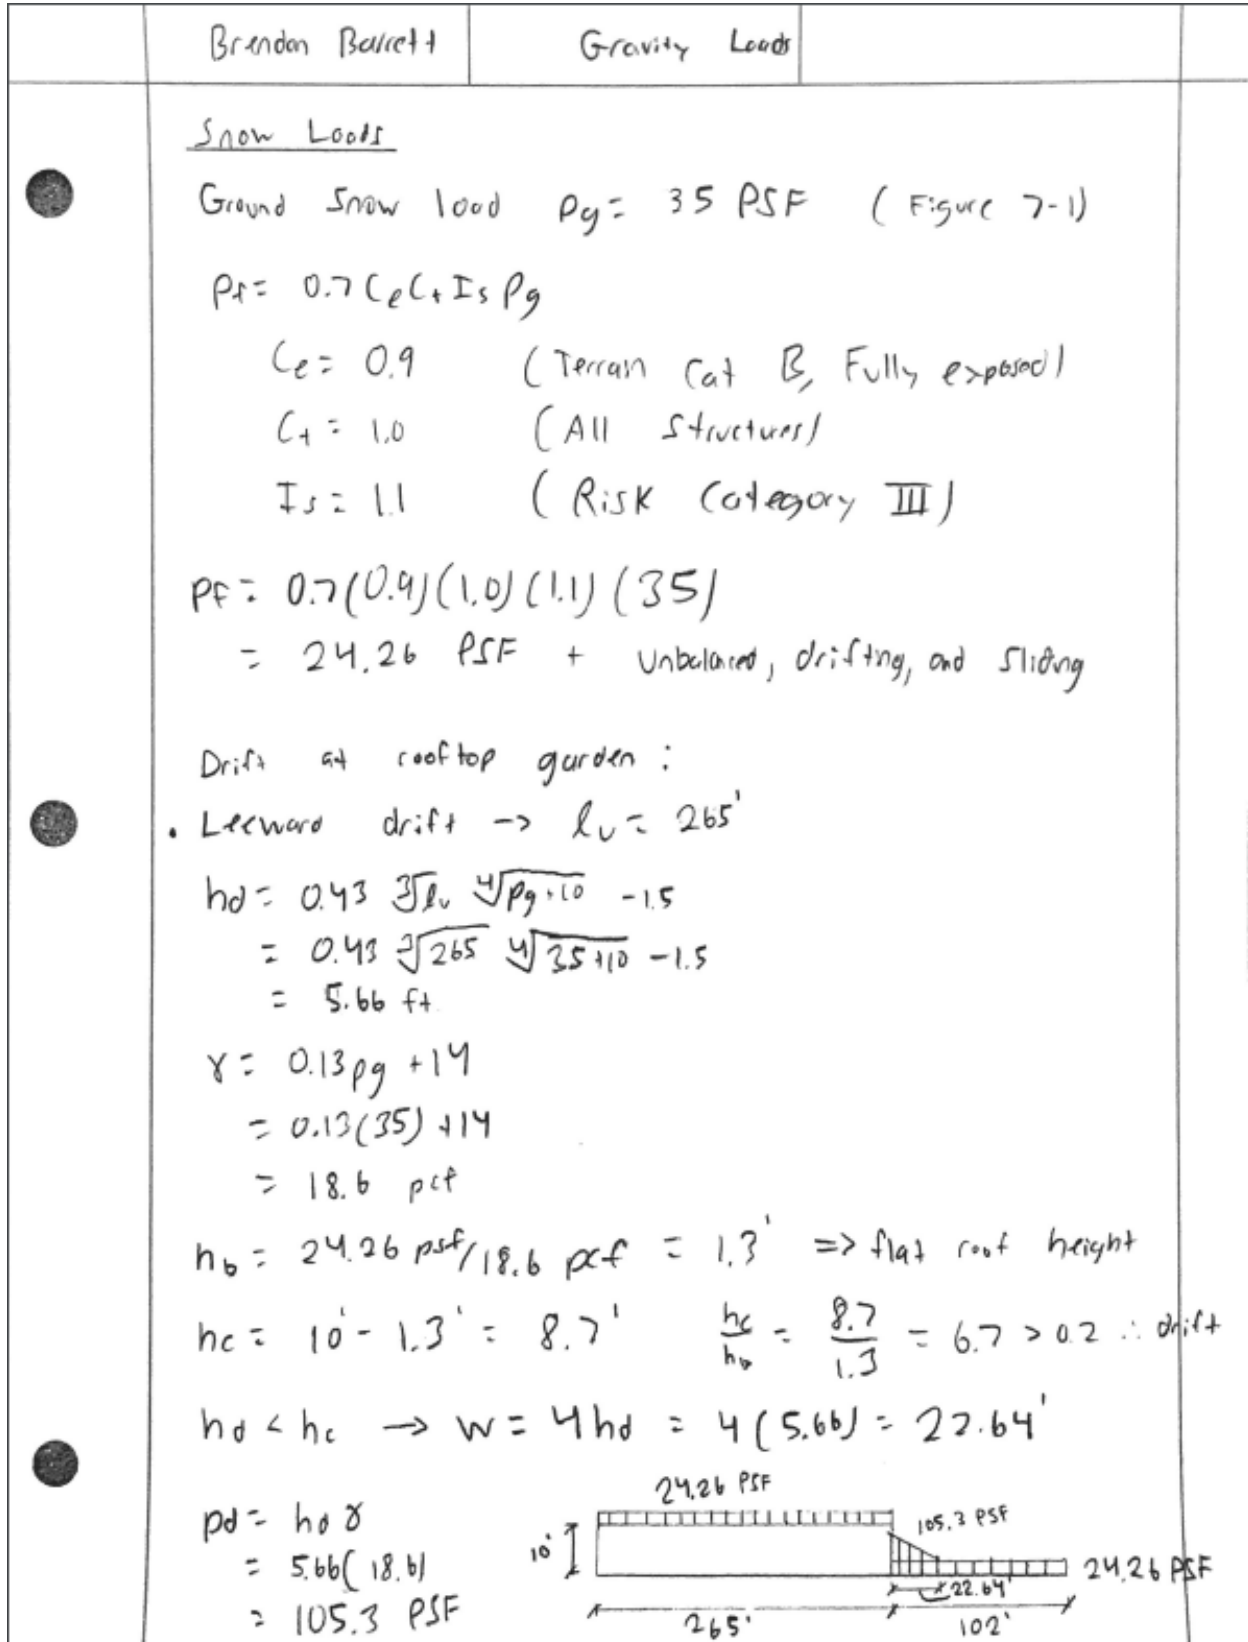 Brendan Barrett Gravity Loads
Snow Loads
Ground Snow load pg = 35 PSF (Figure 7-1)
Pf = 0.7 Ce Ct Is Pg
Ce = 0.9 (Terrain Cat B, Fully exposed)
Ct = 1.0 (All Structures)
Is = 1.1 (Risk Category III)
Pf = 0.7(0.9)(1.0)(1.1)(35)
= 24.26 PSF + Unbalanced, drifting, and Sliding
Drift at rooftop garden:
• Leeward drift -> lu = 265'
hd = 0.43 ∛lu ∜pg+10 -1.5
= 0.43 ∛265 ∜35+10 -1.5
= 5.66 ft
γ = 0.13pg +14
= 0.13(35) +14
= 18.6 pcf
hb = 24.26 psf/18.6 pcf = 1.3' => flat roof height
hc = 10' - 1.3' = 8.7' hc/hb = 8.7/1.3 = 6.7 > 0.2 ∴ drift
hd < hc → w = 4hd = 4(5.66) = 22.64'
pd = hd γ
= 5.66(18.6)
= 105.3 PSF
24.26 PSF
105.3 PSF
10'
24.26 PSF
22.64'
265' 102'